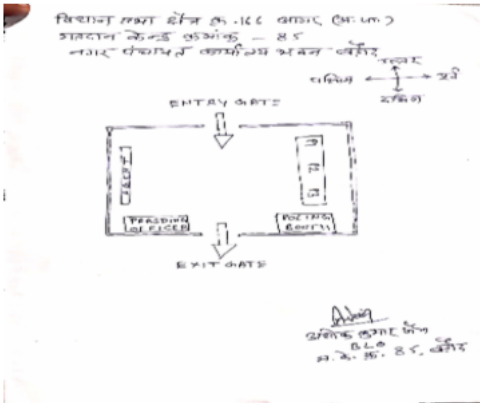 विधान सभा क्षेत्र क्र.-166 आगर (म.प्र.)
मतदान केन्द्र क्रमांक - 85
नगर पंचायत कार्यालय भवन बड़ौद
उत्तर
पश्चिम
पूर्व
दक्षिण
ENTRY GATE
AGENT
P1
P2
P3
PRESDING
OFFICER
POLING
BOOTH
EXIT GATE
अशोक कुमार जैन
BLO
म.के.क्र. 85, बड़ौद